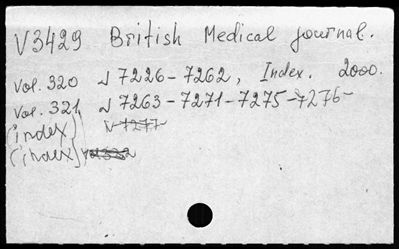 V3429 British Medical journal.
Vol. 320 N 7226-7262, Index. 2000.
Vol. 321 N 7263-7271-7275-7276-
(index) N 7277-
(index)